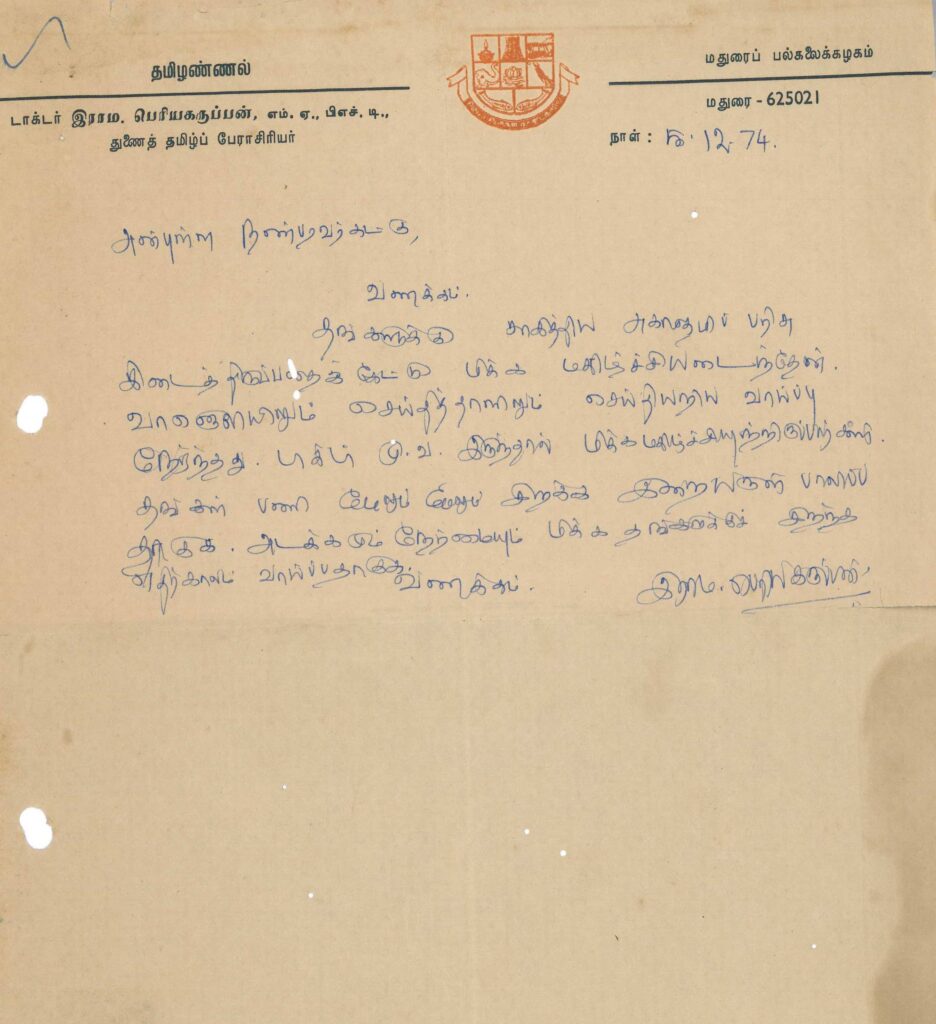 தமிழண்ணல்
டாக்டர் இராம. பெரியகருப்பன், எம். ஏ., பிஎச். டி.,
துணைத் தமிழ்ப் பேராசிரியர்
மதுரைப் பல்கலைக்கழகம்
மதுரை - 625021
நாள் : 12. 74.
அன்புள்ள நண்பரவர்கட்கு,
வணக்கம்.
தங்களுக்கு சாகித்திய அகாதமிப் பரிசு
கிடைத்திருப்பதைக் கேட்டு மிக்க மகிழ்ச்சியடைந்தேன்.
வானொலியிலும் செய்தித்தாளிலும் செய்தியறிய வாய்ப்பு
நேர்ந்தது. டாக்டர் மு. வ. இருந்தால் மிக்க மகிழ்ச்சியுற்றிருப்பார்கள்.
தங்கள் பணி மேலும் மேலும் சிறக்க இறையருள் பாலிப்ப
தாகுக. அடக்கமும் நேர்மையும் மிக்க தங்களுக்குச் சிறந்த
எதிர்காலம் வாய்ப்பதாகுக.
வணக்கம்.
இராம. பெரியகருப்பன்